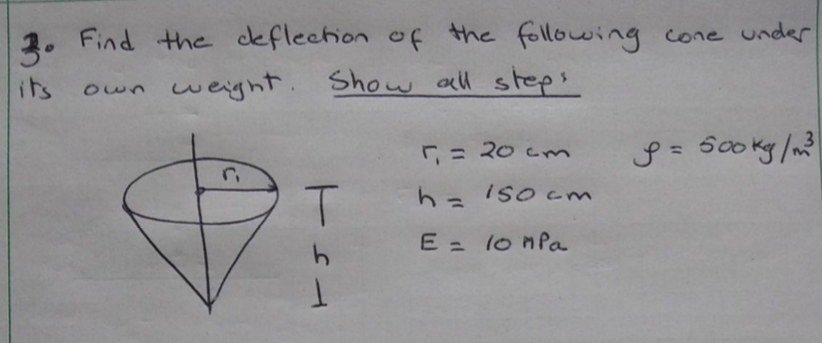 3. Find the deflection of the following cone under
its own weight. Show all steps
r₁ = 20 cm ρ = 500 kg/m³
r₁
h = 150 cm
E = 10 MPa
h